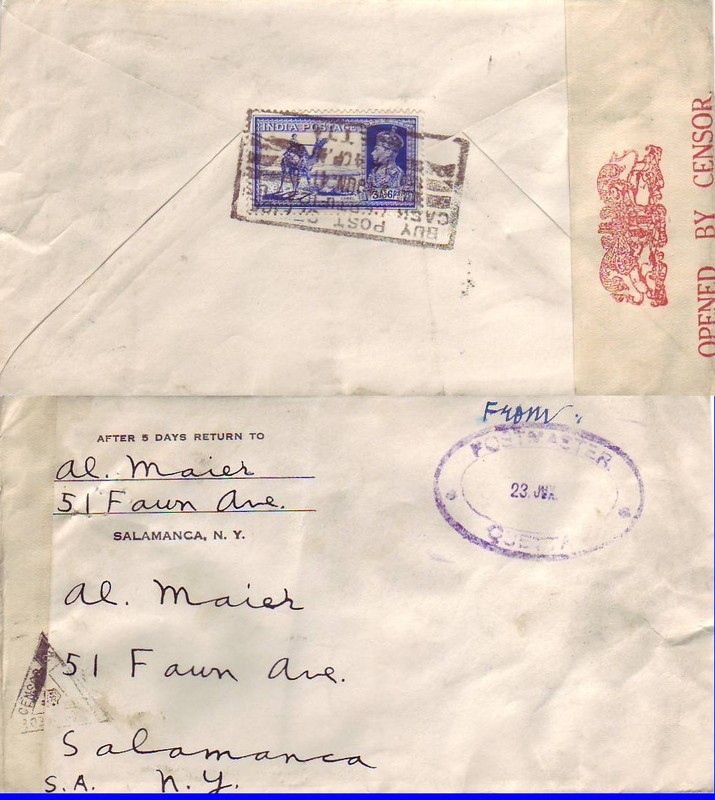 INDIA POSTAGE
3A6P
BUY POST
CASH
OPENED BY CENSOR.
From.
POSTMASTER
23 JUN
QUETTA
AFTER 5 DAYS RETURN TO
Al. Maier
51 Fawn Ave.
SALAMANCA, N. Y.
Al. Maier
51 Fawn Ave.
Salamanca
S.A. N.Y.
CENSOR